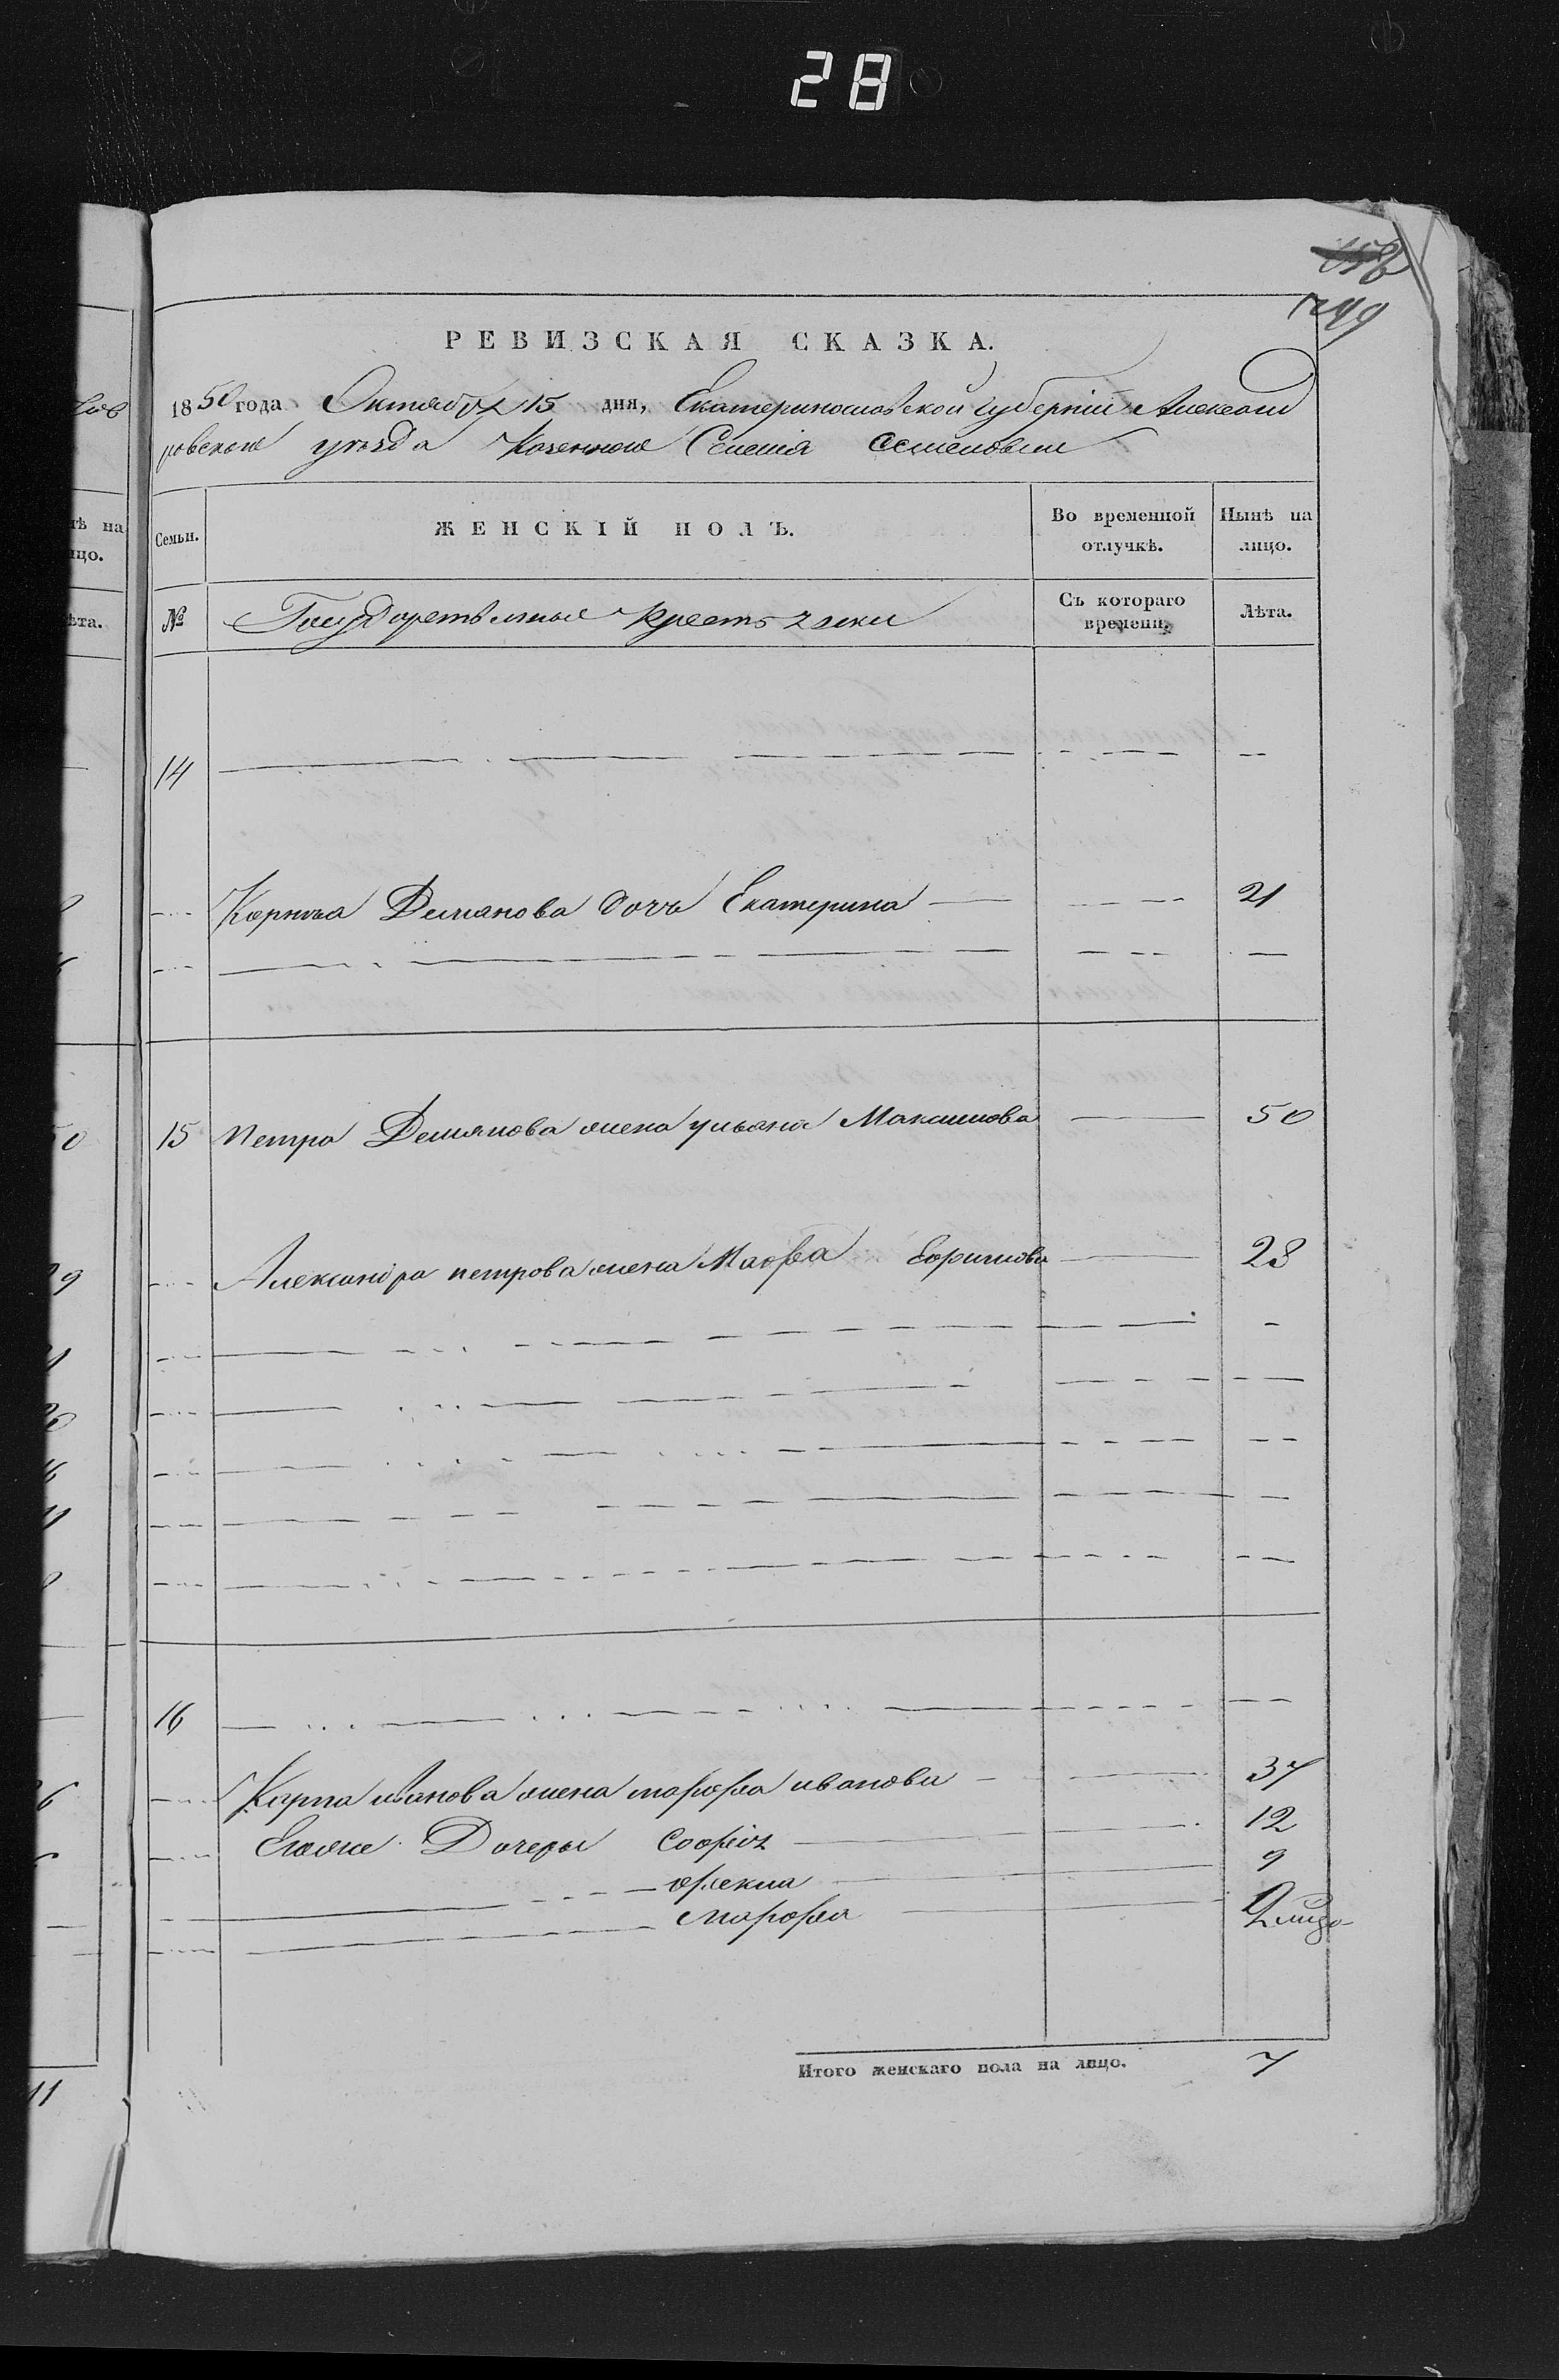 28
749
РЕВИЗСКАЯ СКАЗКА.
1850 года Октября 15 дня, Екатеринославской губерніи Александ
ровскаго уѣзда Казеннаго Селенія Семеновки
Семьи. ЖЕНСКІЙ ПОЛЪ. Во временной отлучкѣ. Нынѣ на лицо.
№ Государственные крестьянки Съ котораго времени. Лѣта.
14
Корнѣя Демянова дочь Екатерина 21
15 Петра Демянова жена ульяна Максимова 50
Александра петрова жена Марфа 28
16
Карпа иванова жена марфа иванова 37
Егоже Дочеры Софія 12
фекла 9
марфа
Итого женскаго пола на лицо. 7
ѣ на
цо.
ѣта.
11